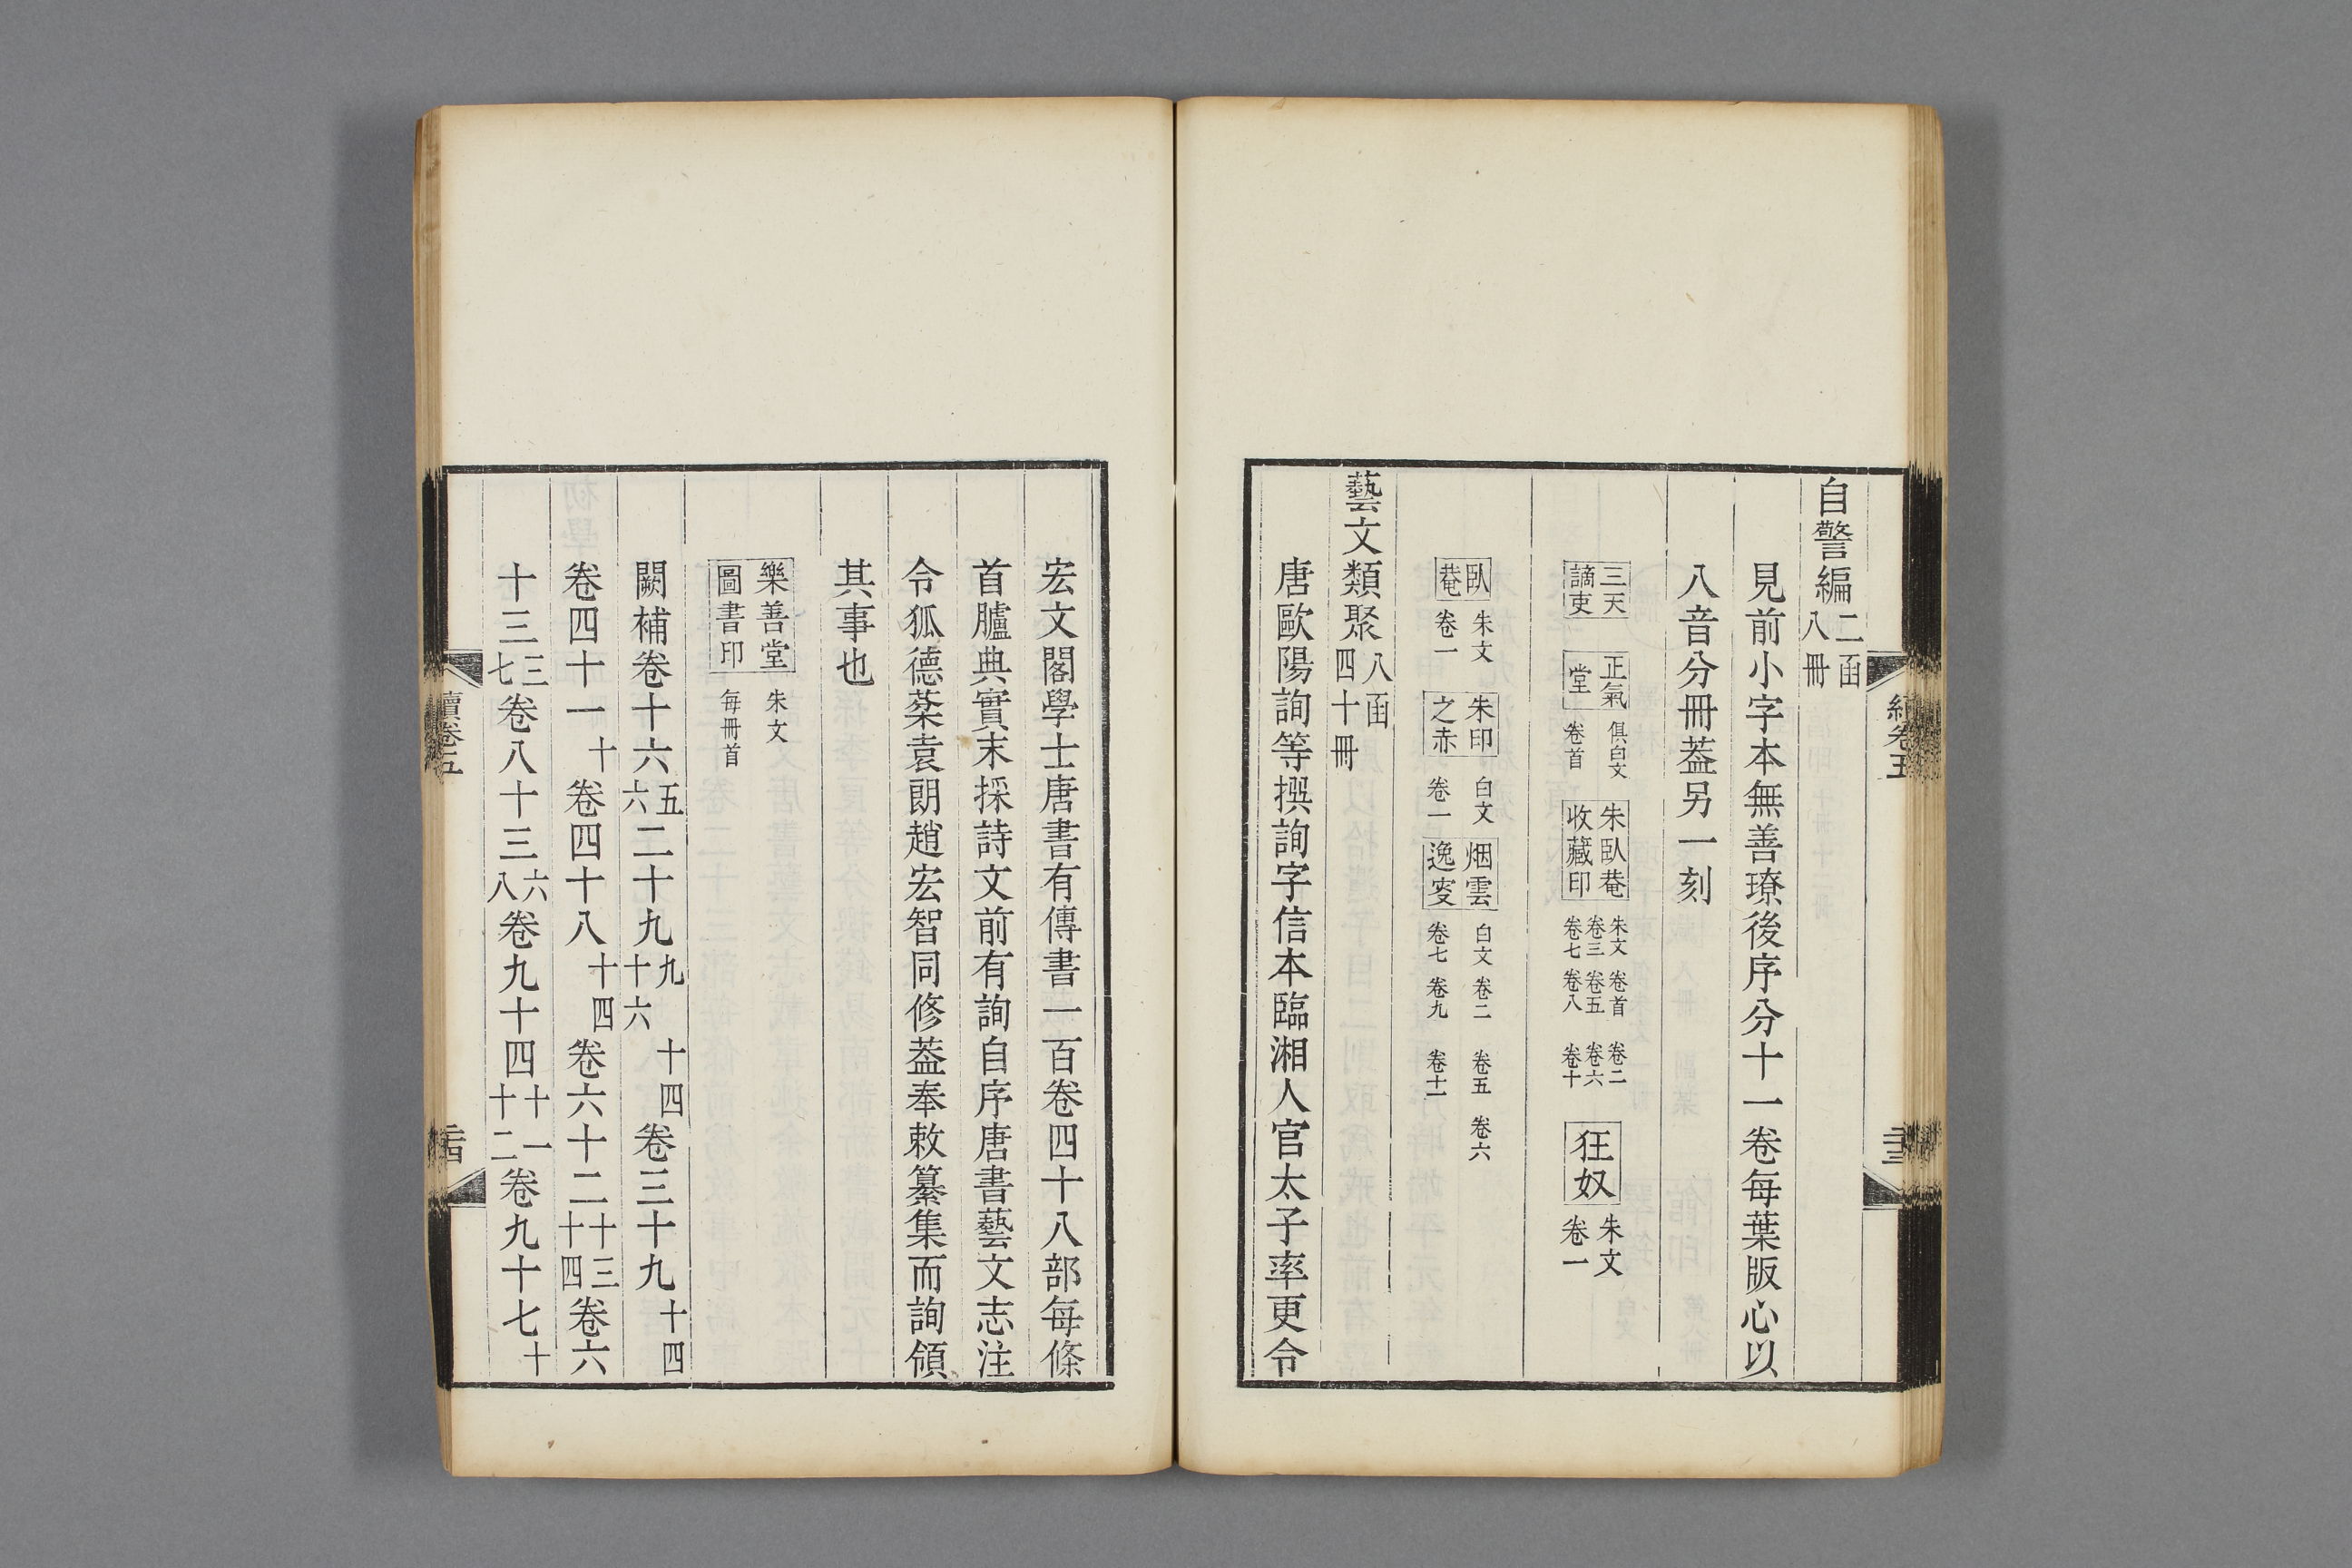 續卷五
二十三
自警編二函八冊
見前小字本無善璙後序分十一卷每葉版心以
八音分冊葢另一刻
三天謫吏
正氣堂
俱白文卷首
朱臥菴收藏印
朱文卷首卷二卷三卷五卷六卷七卷八卷十
狂奴
朱文卷一
臥菴
朱文卷一
朱印之赤
白文卷一
烟雲逸叜
白文卷二卷五卷六卷七卷九卷十一
藝文類聚八函四十冊
唐歐陽詢等撰詢字信本臨湘人官太子率更令
宏文閣學士唐書有傳書一百卷四十八部每條
首臚典實末採詩文前有詢自序唐書藝文志注
令狐德棻袁朗趙宏智同修葢奉敕纂集而詢領
其事也
樂善堂圖書印
朱文每冊首
闕補卷十六五六二十九九十六十四卷三十九十四
卷四十一十卷四十八十四卷六十二十三十四卷六
十三三七卷八十三六八卷九十四十一十二卷九十七十
續卷五
二十四